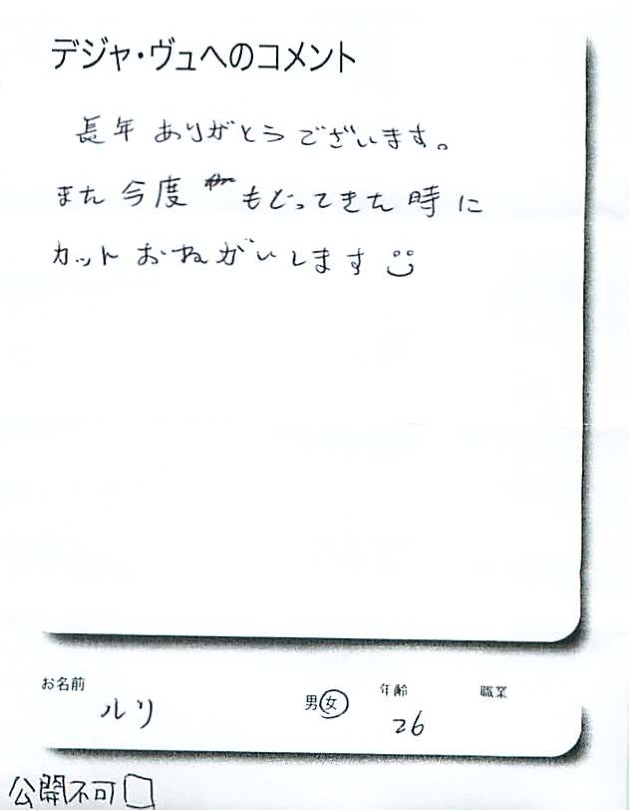 デジャ・ヴュへのコメント
長年 ありがとうございます。
また 今度 もどってきた 時 に
カット おねがいします
お名前
ルリ
男女
年齢
26
職業
公開不可□